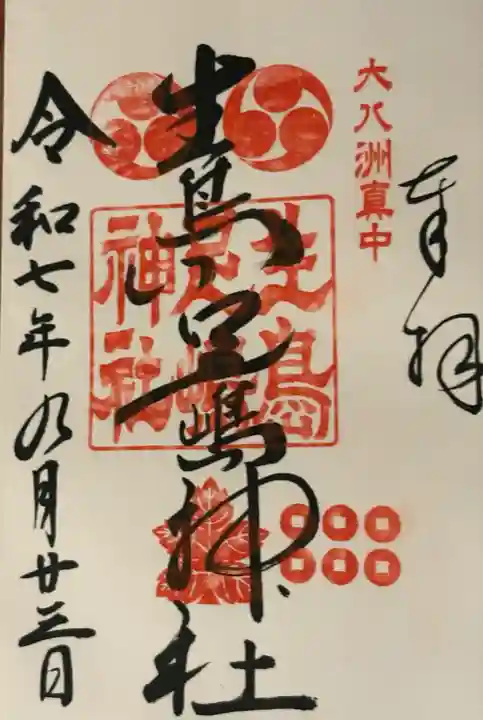 奉拝
大八洲真中
生島足嶋神社
生島
足嶋
神社
令和七年九月廿三日